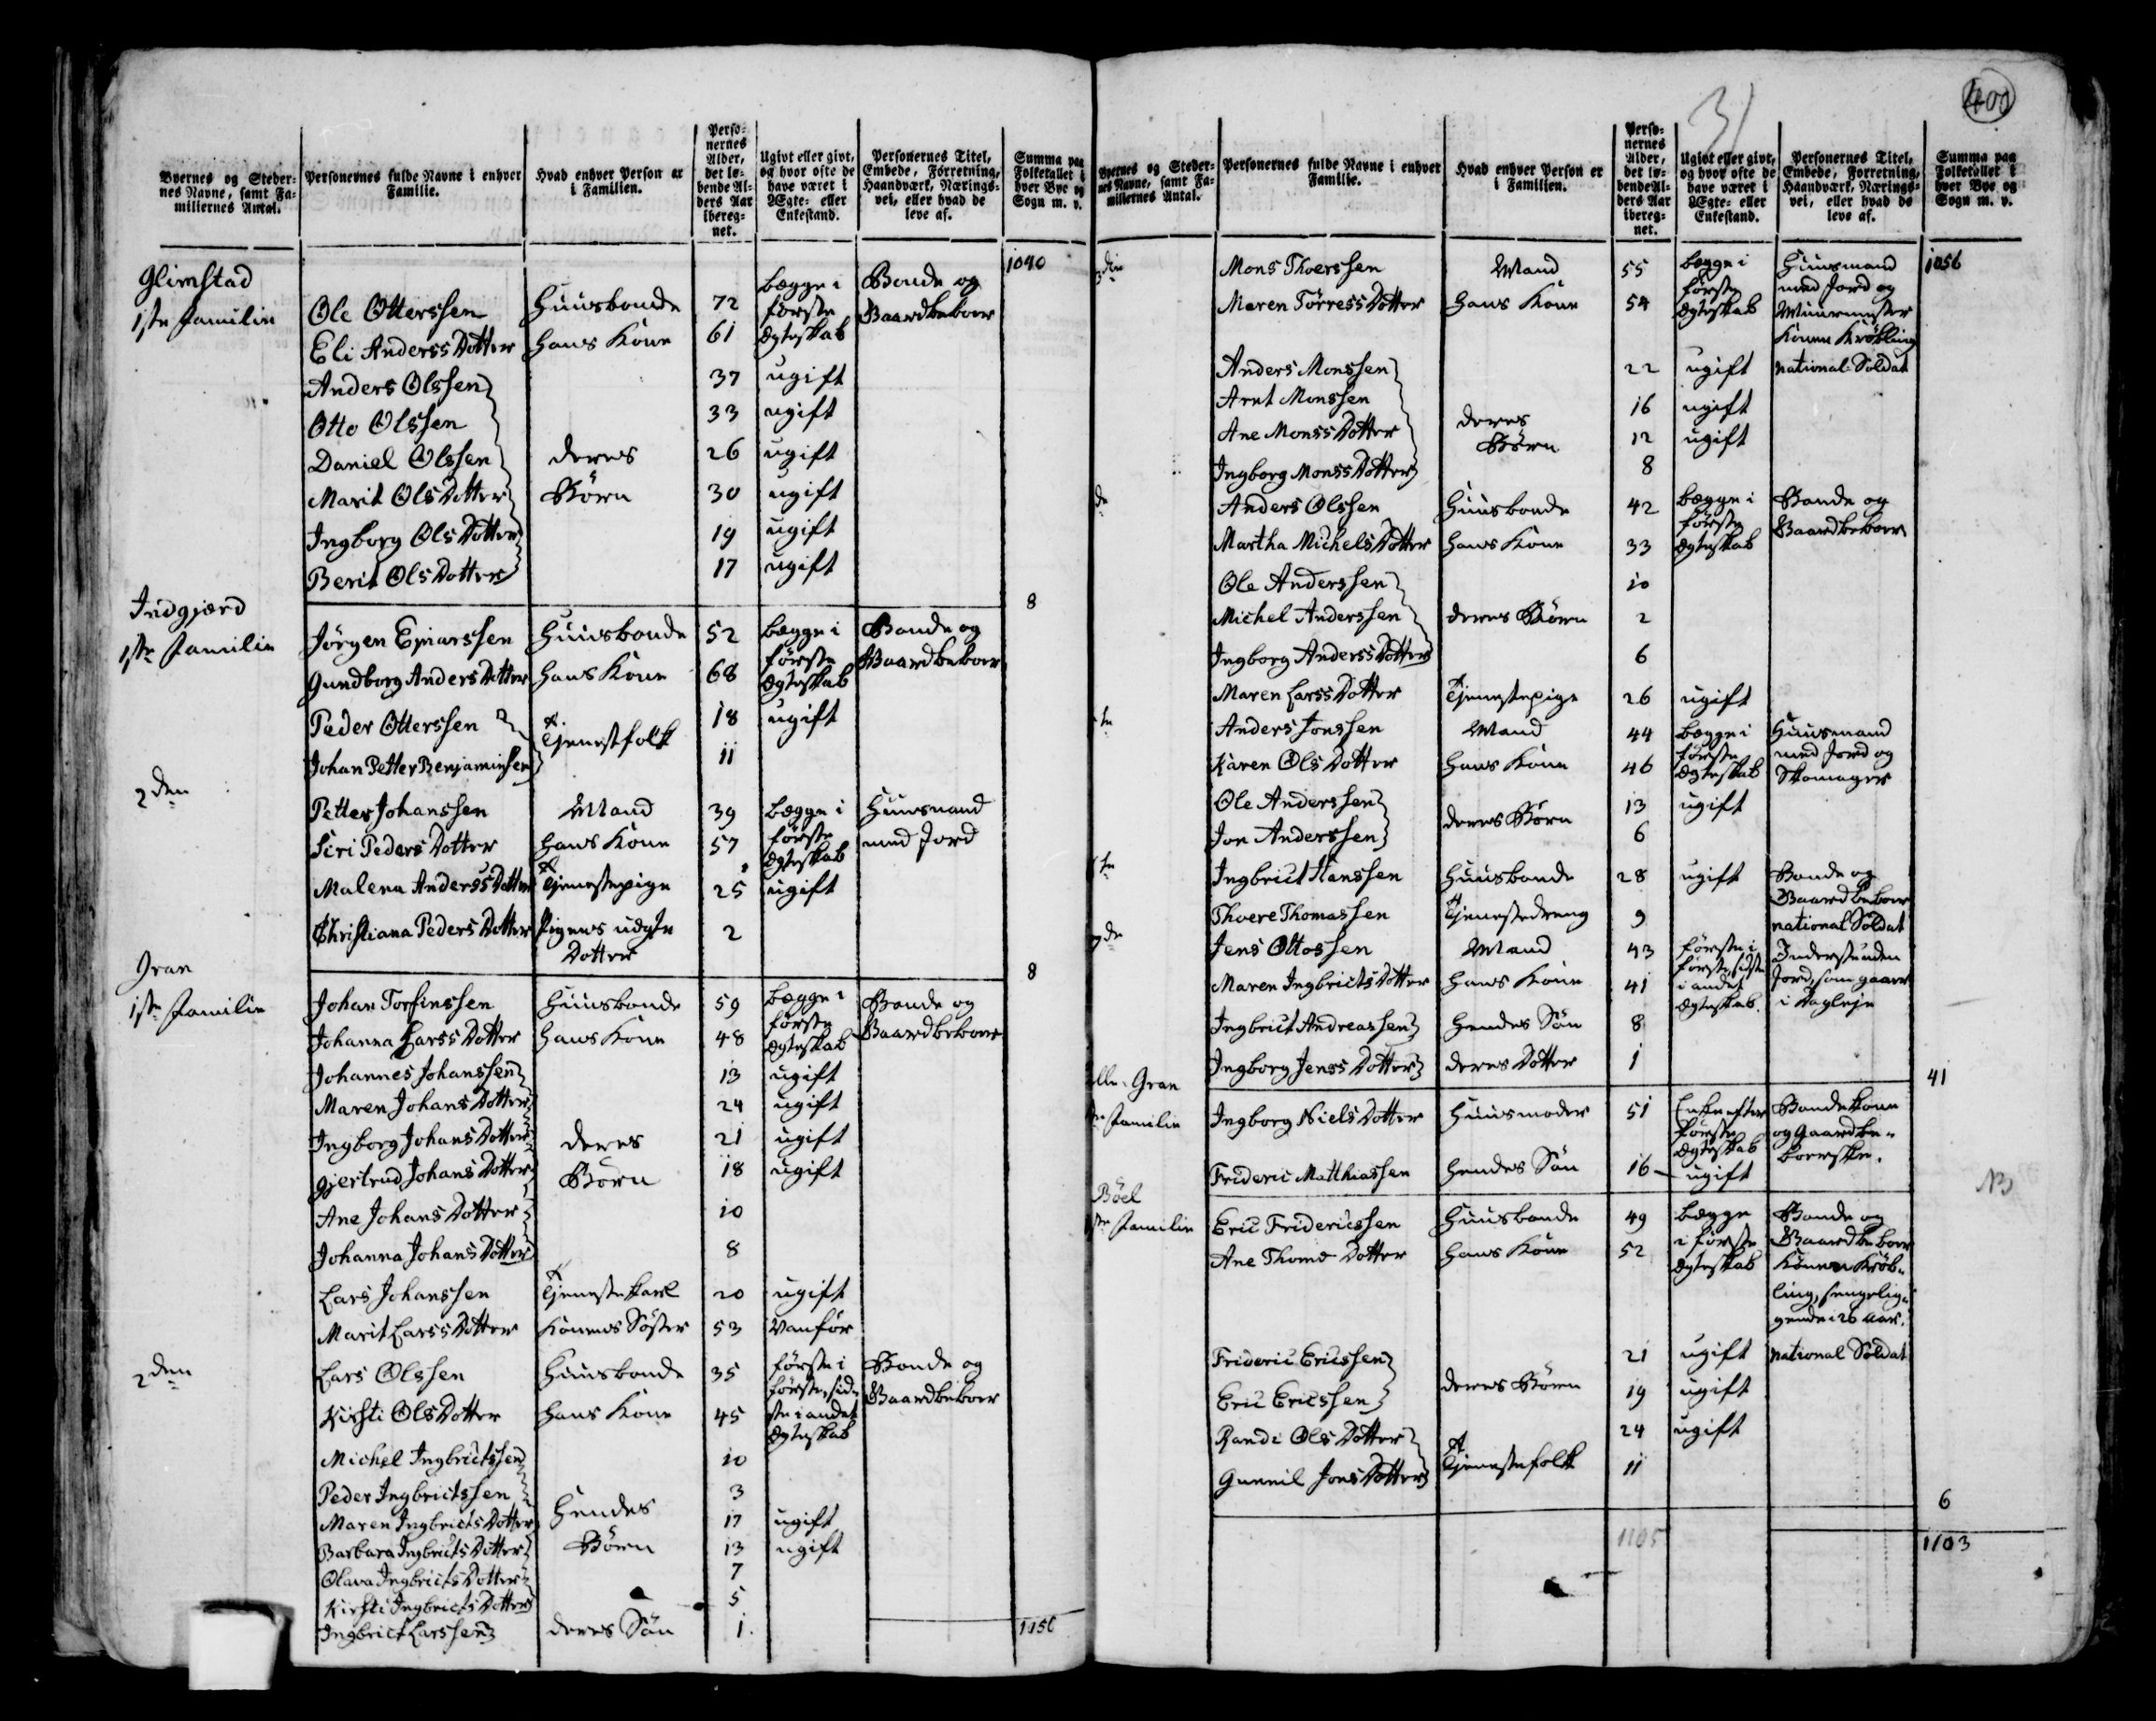 Byernes og Steder-
nes Navne, samt Fa-
miliernes Antal.
Personernes fulde Navne i enhver
Familie.
Hvad enhver Person er
i Familien.
Perso-
nernes
Alder,
det lø-
bende Al-
ders Aar
ibereg-
net.
Ugivt eller givt,
og hvor ofte de
have været i
Ægte- eller
Enkestand.
Personernes Titel,
Embede, Forretning,
Haandværk, Nærings-
vei, eller hvad de
leve af.
Summa paa
Folketallet i
hver Bye og
Sogn m. v.
1040
Glimstad
1ste Familie
Ole Otterssen Huusbonde 72 begge i første Ægteskab Bonde og Gaardbeboer
Eli Anderss Dotter Hans Kone 61
Anders Olssen 37 ugift
Otto Olssen 33 ugift
Daniel Olssen deres 26 ugift
Marit Ols Dotter Børn 30 ugift
Ingborg Ols Dotter 19 ugift
Berit Ols Dotter 17 ugift
8
Indgjærd
1ste Familie
Jørgen Ejnarssen Huusbonde 52 begge i første Ægteskab Bonde og Gaardbeboer
Gundborg Anders Dotter Hans Kone 68
Peder Otterssen Tjenestfolk 18 ugift
Johan Petter Benjaminsen 11
2den
Petter Johanssen Mand 39 begge i første Ægteskab Huusmand med Jord
Siri Peders Dotter Hans Kone 57
Malena Anderss Dotter Tjenestepige 25 ugift
Christiana Peders Dotter Pigens udgte Dotter 2
8
Gran
1ste Familie
Johan Torfinssen Huusbonde 59 begge i første Ægteskab Bonde og Gaardbeboer
Johanna Larss Dotter Hans Kone 48
Johannes Johanssen 13 ugift
Maren Johans Dotter 24 ugift
Ingborg Johans Dotter deres 21 ugift
Gjertrud Johans Dotter Børn 18 ugift
Ane Johans Dotter 10
Johanna Johans Dotter 8
Lars Johanssen Tjenestekarl 20 ugift
Marit Larss Dotter Konens Søster 53 Vanfør
2den
Lars Olssen Huusbonde 35 første i første, sidste i andet Ægteskab Bonde og Gaardbeboer
Kirsti Ols Dotter Hans Kone 45
Michel Ingbrictssen 10
Peder Ingbrictssen Hendes 3
Maren Ingbricts Dotter Børn 17 ugift
Barbara Ingbricts Dotter 13 ugift
Olava Ingbricts Dotter 7
Kirsti Ingbricts Dotter 5
Ingbrict Larssen deres Søn 1
1056
31
400
Byernes og Steder-
nes Navne, samt Fa-
miliernes Antal.
Personernes fulde Navne i enhver
Familie.
Hvad enhver Person er
i Familien.
Perso-
nernes
Alder,
det lø-
bende Al-
ders Aar
ibereg-
net.
Ugivt eller givt,
og hvor ofte de
have været i
Ægte- eller
Enkestand.
Personernes Titel,
Embede, Forretning,
Haandværk, Nærings-
vei, eller hvad de
leve af.
Summa paa
Folketallet i
hver Bye og
Sogn m. v.
1056
3die
Mons Thoerssen Mand 55 begge i første Ægteskab Huusmand med Jord og Muurmester Konen Krøbling
Maren Tørress Dotter Hans Kone 54
Anders Monssen 22 ugift national Soldat
Arnt Monssen deres 16 ugift
Ane Monss Dotter Børn 12 ugift
Ingborg Monss Dotter 8
Anders Olssen Huusbonde 42 begge i første Ægteskab Bonde og Gaardbeboer
Martha Michels Dotter Hans Kone 33
Ole Anderssen 10
Michel Anderssen deres Børn 2
Ingborg Anderss Dotter 6
Maren Larss Dotter Tjenestepige 26 ugift
Anders Jonssen Mand 44 begge i første Ægteskab Huusmand med Jord og Skomager
Karen Ols Dotter Hans Kone 46
Ole Anderssen deres Børn 13 ugift
Jon Anderssen 6
Ingbrict Hanssen Huusbonde 28 ugift Bonde og Gaardbeboer national Soldat
Thoere Thomassen Tjenestedreng 9
7de
Jens Ottossen Mand 43 første i første, sidste i andet Ægteskab. Inderst uden Jord, som gaar i Dagleje
Maren Ingbricts Dotter Hans Kone 41
Ingbrict Andreassen Hendes Søn 8
Ingborg Jenss Dotter deres Dotter 1
41
Gran
Familie
Ingborg Niels Dotter Huusmoder 51 Enke efter første Ægteskab Bondekone og Gaardbeboerske.
Frideric Matthiassen Hendes Søn 16 ugift
NB
Böel
1ste Familie
Eric Fridericssen Huusbonde 49 begge i første Ægteskab Bonde og Gaardbeboer Konen Krøbling, sengeliggende i 26 Aar.
Ane Thomæ Dotter Hans Kone 52
Frideric Ericssen deres Børn 21 ugift national Soldat
Eric Ericssen 19 ugift
Randi Ols Dotter Tjenestefolk 24 ugift
Gunnil Jons Dotter 11
6
1105
1103